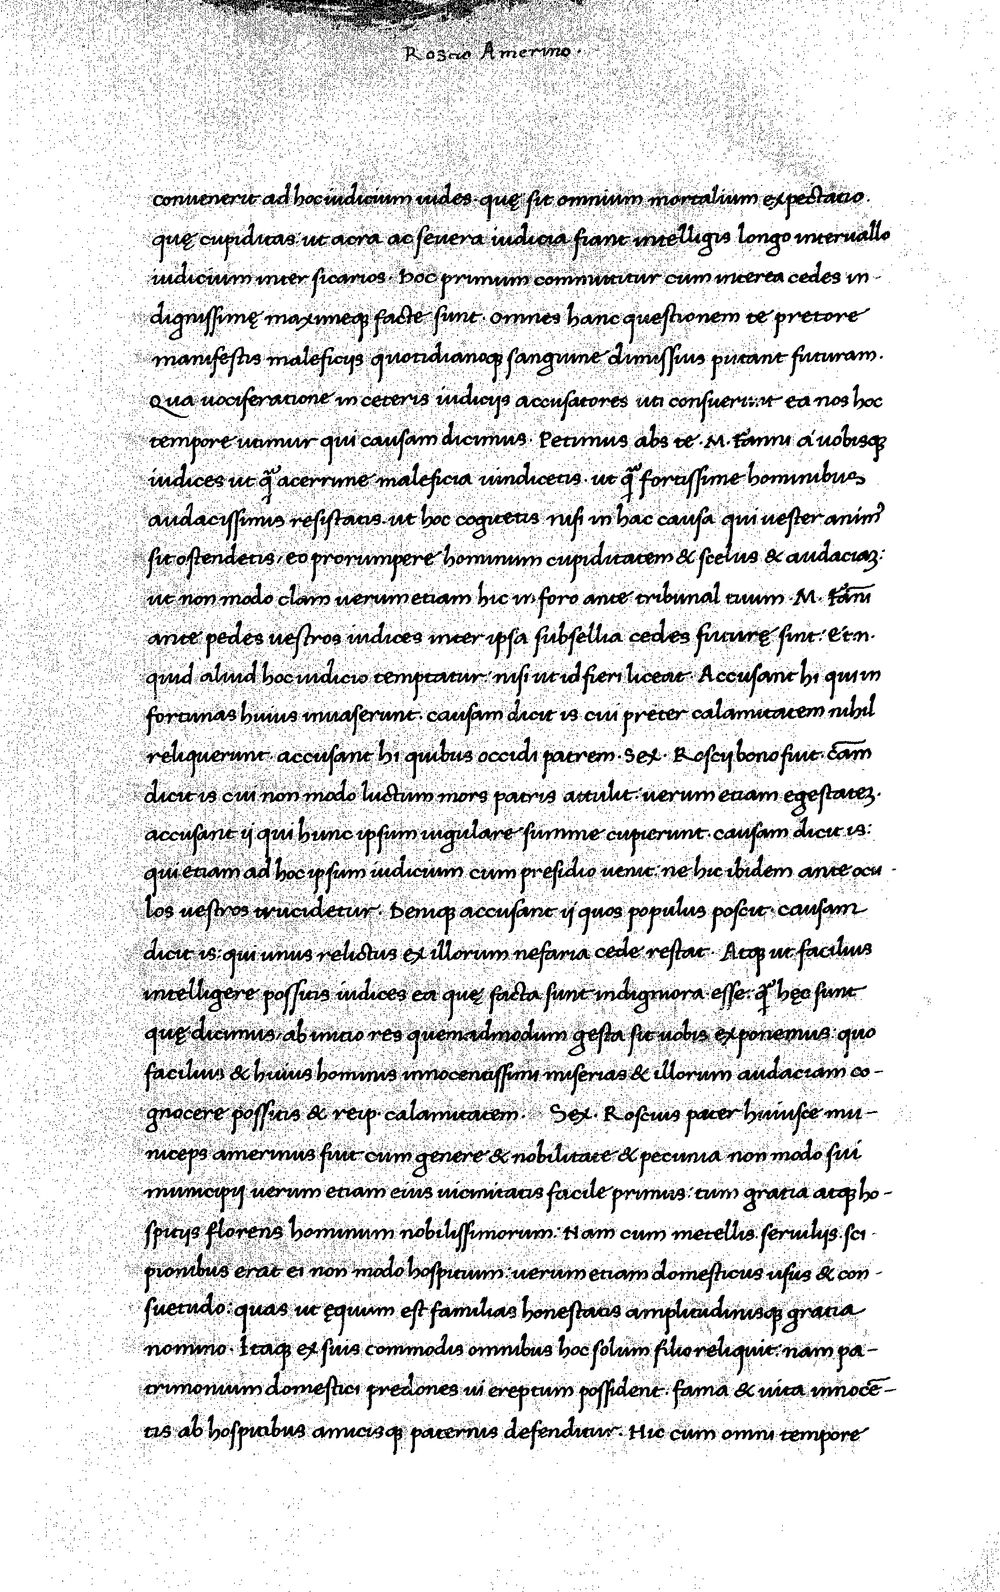 Roscio Amerino.
conuenerit ad hoc iudicium uides. quę sit omnium mortalium expectatio.
quę cupiditas ut acra ac seuera iudicia fiant intelligis longo interuallo
iudicium inter sicarios. hoc primum committitur cum interea cedes in-
dignissimę maximeq; facte sunt. Omnes hanc questionem te pretore
manifestis maleficijs quotidianoq; sanguine dimissius putant futuram.
Qua uociferatione in ceteris iudicijs accusatores uti consuerunt ea nos hoc
tempore utimur qui causam dicimus. Petimus abs te .M. Fanni a uobisq;
iudices ut q̃ acerrime maleficia uindicetis. ut q̃ fortissime hominibus
audacissimis resistatis. ut hoc cogitetis nisi in hac causa qui uester anim᾽
sit ostendetis, eo prorumpere hominum cupiditatem & scelus & audaciaʒ:
ut non modo clam uerum etiam hic in foro ante tribunal tuum .M. Fãni
ante pedes uestros iudices inter ipsa subsellia cedes futurę sint. Etn.
quid aliud hoc iudicio temptatur. nisi ut id fieri liceat. Accusant hi qui in
fortunas huius inuaserunt. causam dicit is cui preter calamitatem nihil
reliquerunt. accusant hi quibus occidi patrem. Sex. Roscij bono fuit. cãm
dicit is cui non modo luctum mors patris attulit. uerum etiam egestateʒ.
accusant ij qui hunc ipsum iugulare summe cupierunt. causam dicit is:
qui etiam ad hoc ipsum iudicium cum presidio uenit. ne hic ibidem ante ocu-
los uestros trucidetur. Deniq; accusant ij quos populus poscit. causam
dicit is: qui unus relictus ex illorum nefaria cede restat. Atq; ut facilius
intelligere possitis iudices ea quę facta sunt indigniora esse. q̃ hęc sunt
quę dicimus, ab initio res quemadmodum gesta sit uobis exponemus. quo
facilius & huius hominis innocentissimi miserias & illorum audaciam co-
gnocere possitis & reip. calamitatem. Sex. Roscius pater huiusce mu-
niceps amerinus fuit cum genere & nobilitate & pecunia non modo sui
municipij uerum etiam eius uicinitatis facile primus: tum gratia atq; ho-
spitijs florens hominum nobilissimorum. Nam cum metellis seruilijs sci-
pionibus erat ei non modo hospitium: uerum etiam domesticus usus & con-
suetudo: quas ut ęquum est familias honestatis amplitudinisq; gratia
nomino. Itaq; ex suis commodis omnibus hoc solum filio reliquit. nam pa-
trimonium domestici predones ui ereptum possident. fama & uita innocẽ-
tis ab hospitibus amicisq; paternis defenditur. Hic cum omni tempore